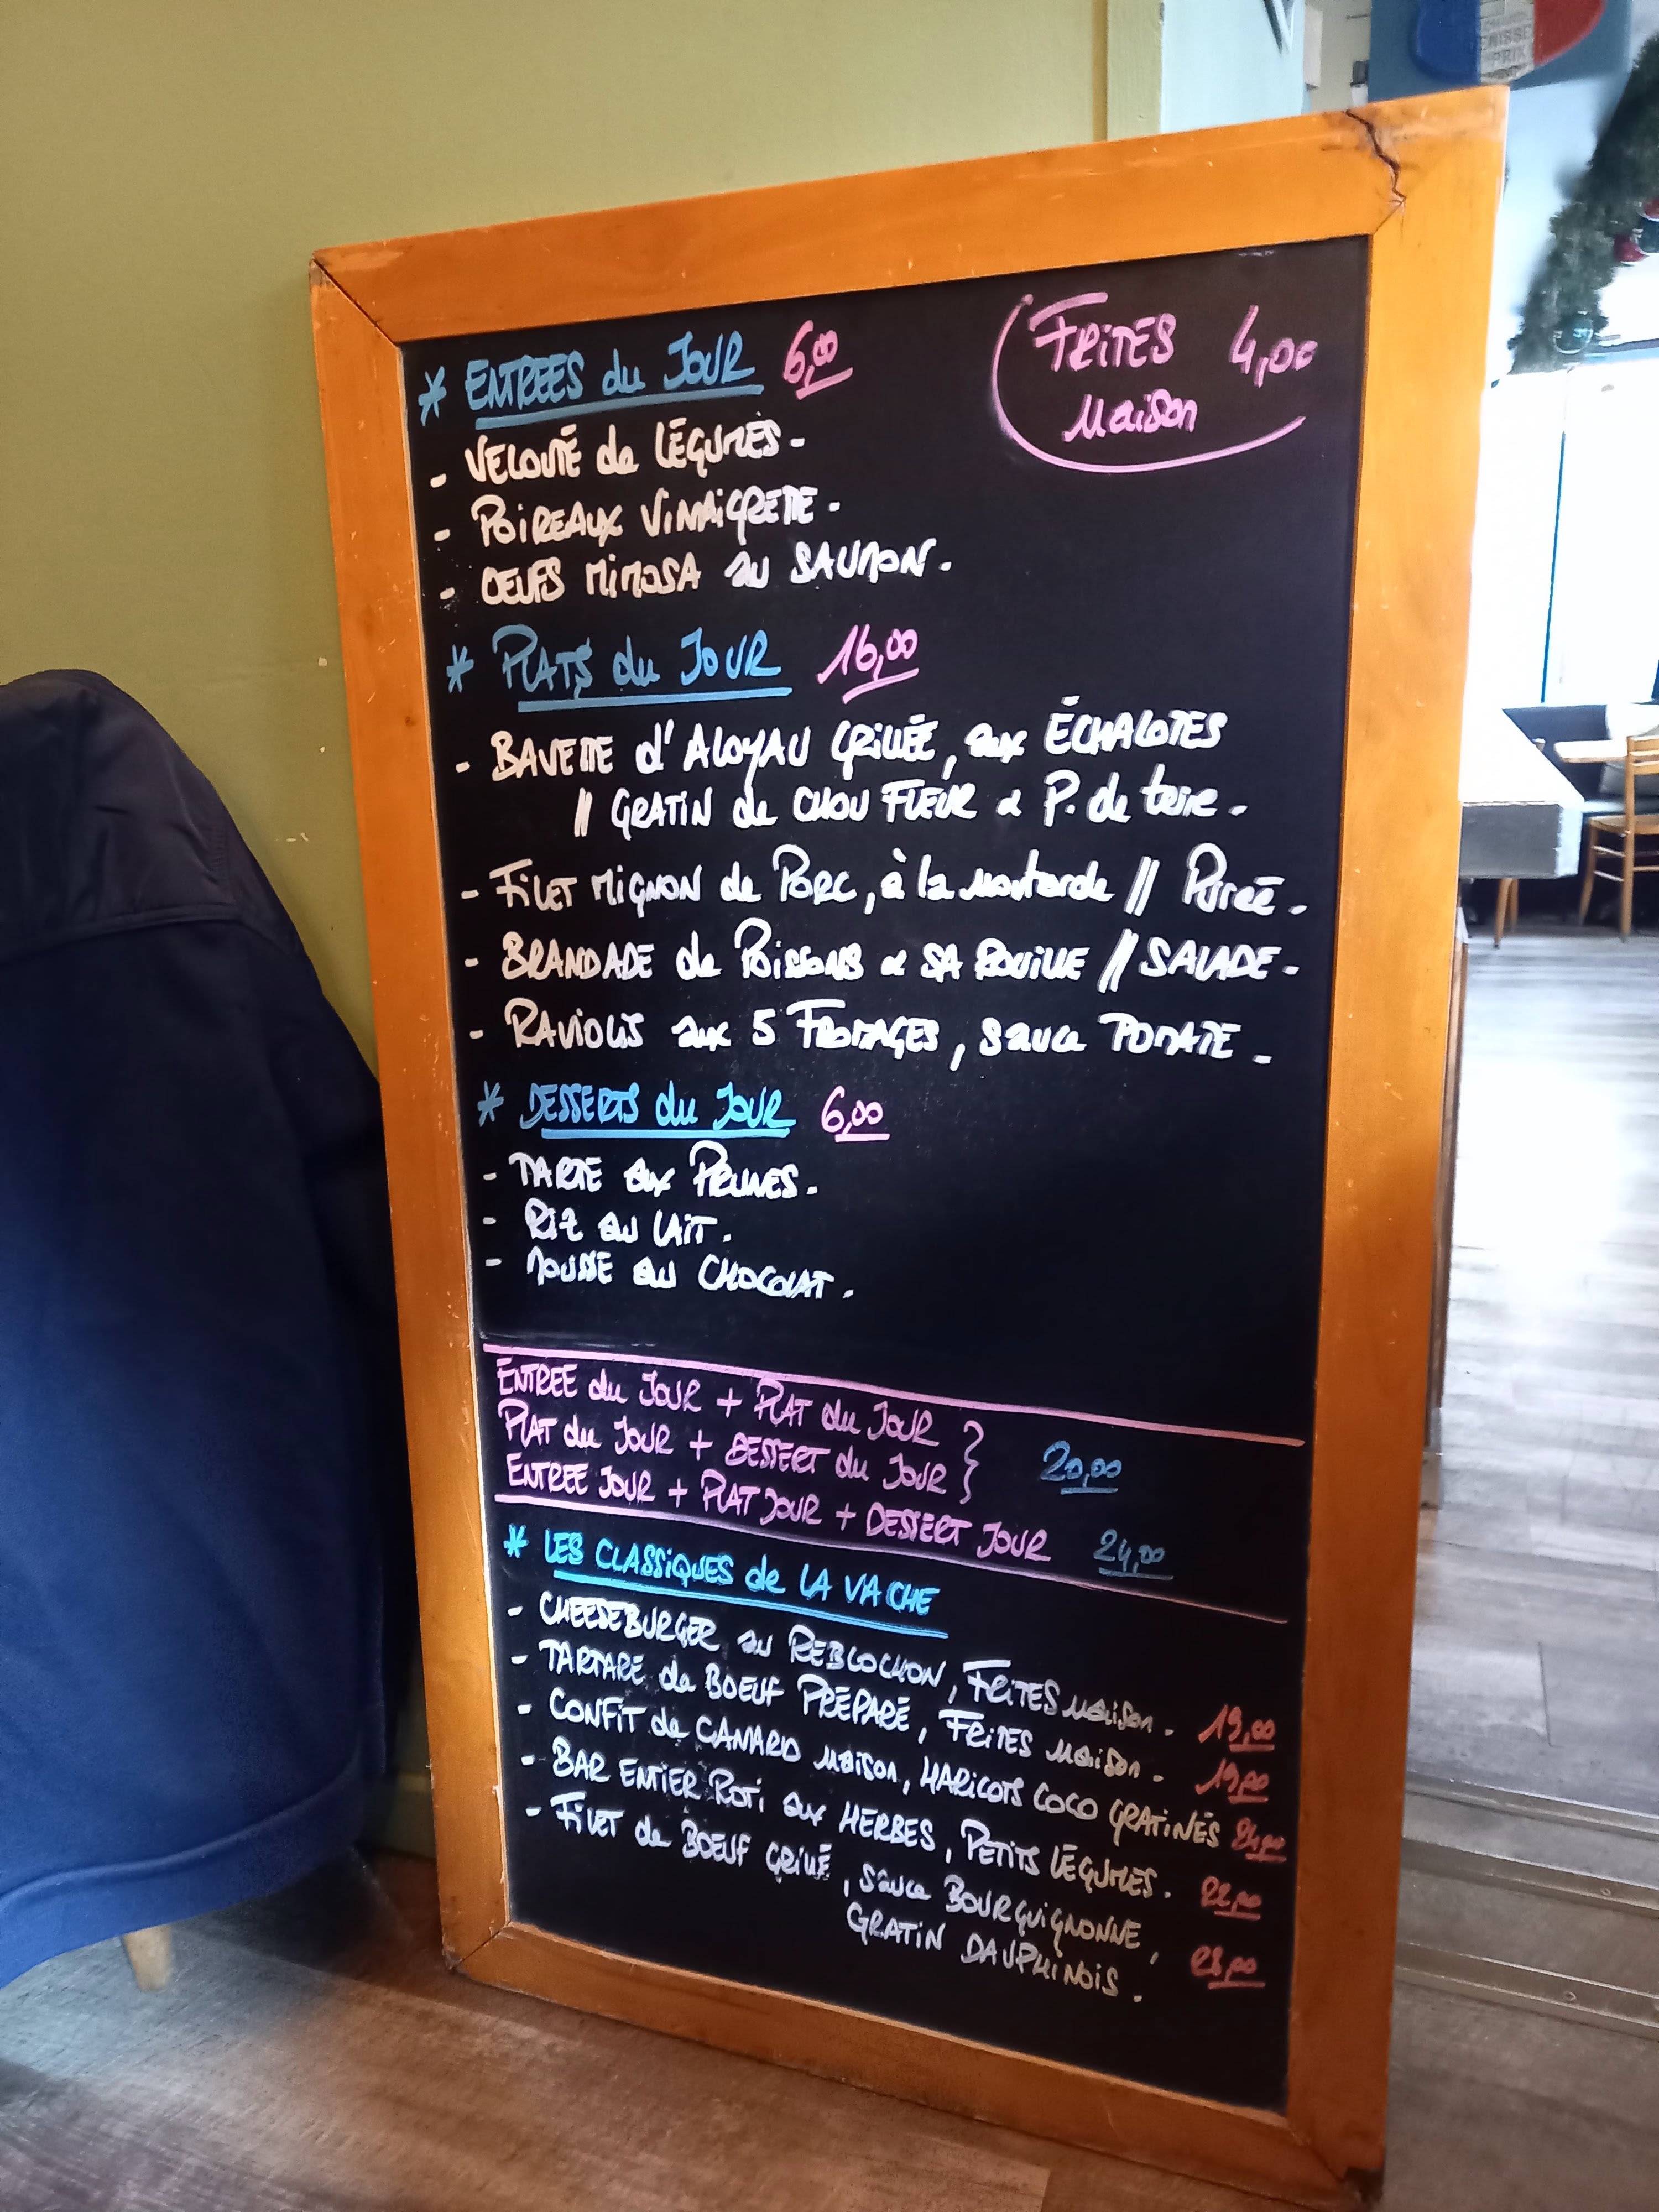 * ENTREES du JOUR 6,00
FRITES 4,0€
Maison
- VELOUTÉ de LÉGUMES -
- POIREAUX VINAIGRETTE -
- OEUFS MIMOSA au SAUMON.
* PLATS du JOUR 16,00
- BAVETTE d'ALOYAU GRILLÉE, aux ÉCHALOTES
// GRATIN de CHOU FLEUR & P. de terre -
- FILET MIGNON de PORC, à la moutarde // Purée -
- BRANDADE de POISSONS & SA ROUILLE // SALADE -
- RAVIOLIS aux 5 FROMAGES, sauce TOMATE -
* DESSERTS du JOUR 6,00
- TARTE aux PRUNES.
- RIZ au LAIT.
- MOUSSE au CHOCOLAT.
ENTREE du JOUR + PLAT du JOUR
PLAT du JOUR + DESSERT du JOUR } 20,00
ENTREE JOUR + PLAT JOUR + DESSERT JOUR 24,00
* LES CLASSIQUES de LA VACHE
- CHEESEBURGER au REBLOCHON, FRITES Maison. 19,00
- TARTARE de BOEUF PRÉPARÉ, FRITES Maison. 19,00
- CONFIT de CANARD Maison, HARICOTS COCO GRATINÉS 24,00
- BAR ENTIER ROTI aux HERBES, PETITS LÉGUMES. 22,00
- FILET de BOEUF GRILLÉ, sauce BOURGUIGNONNE,
GRATIN DAUPHINOIS. 28,00